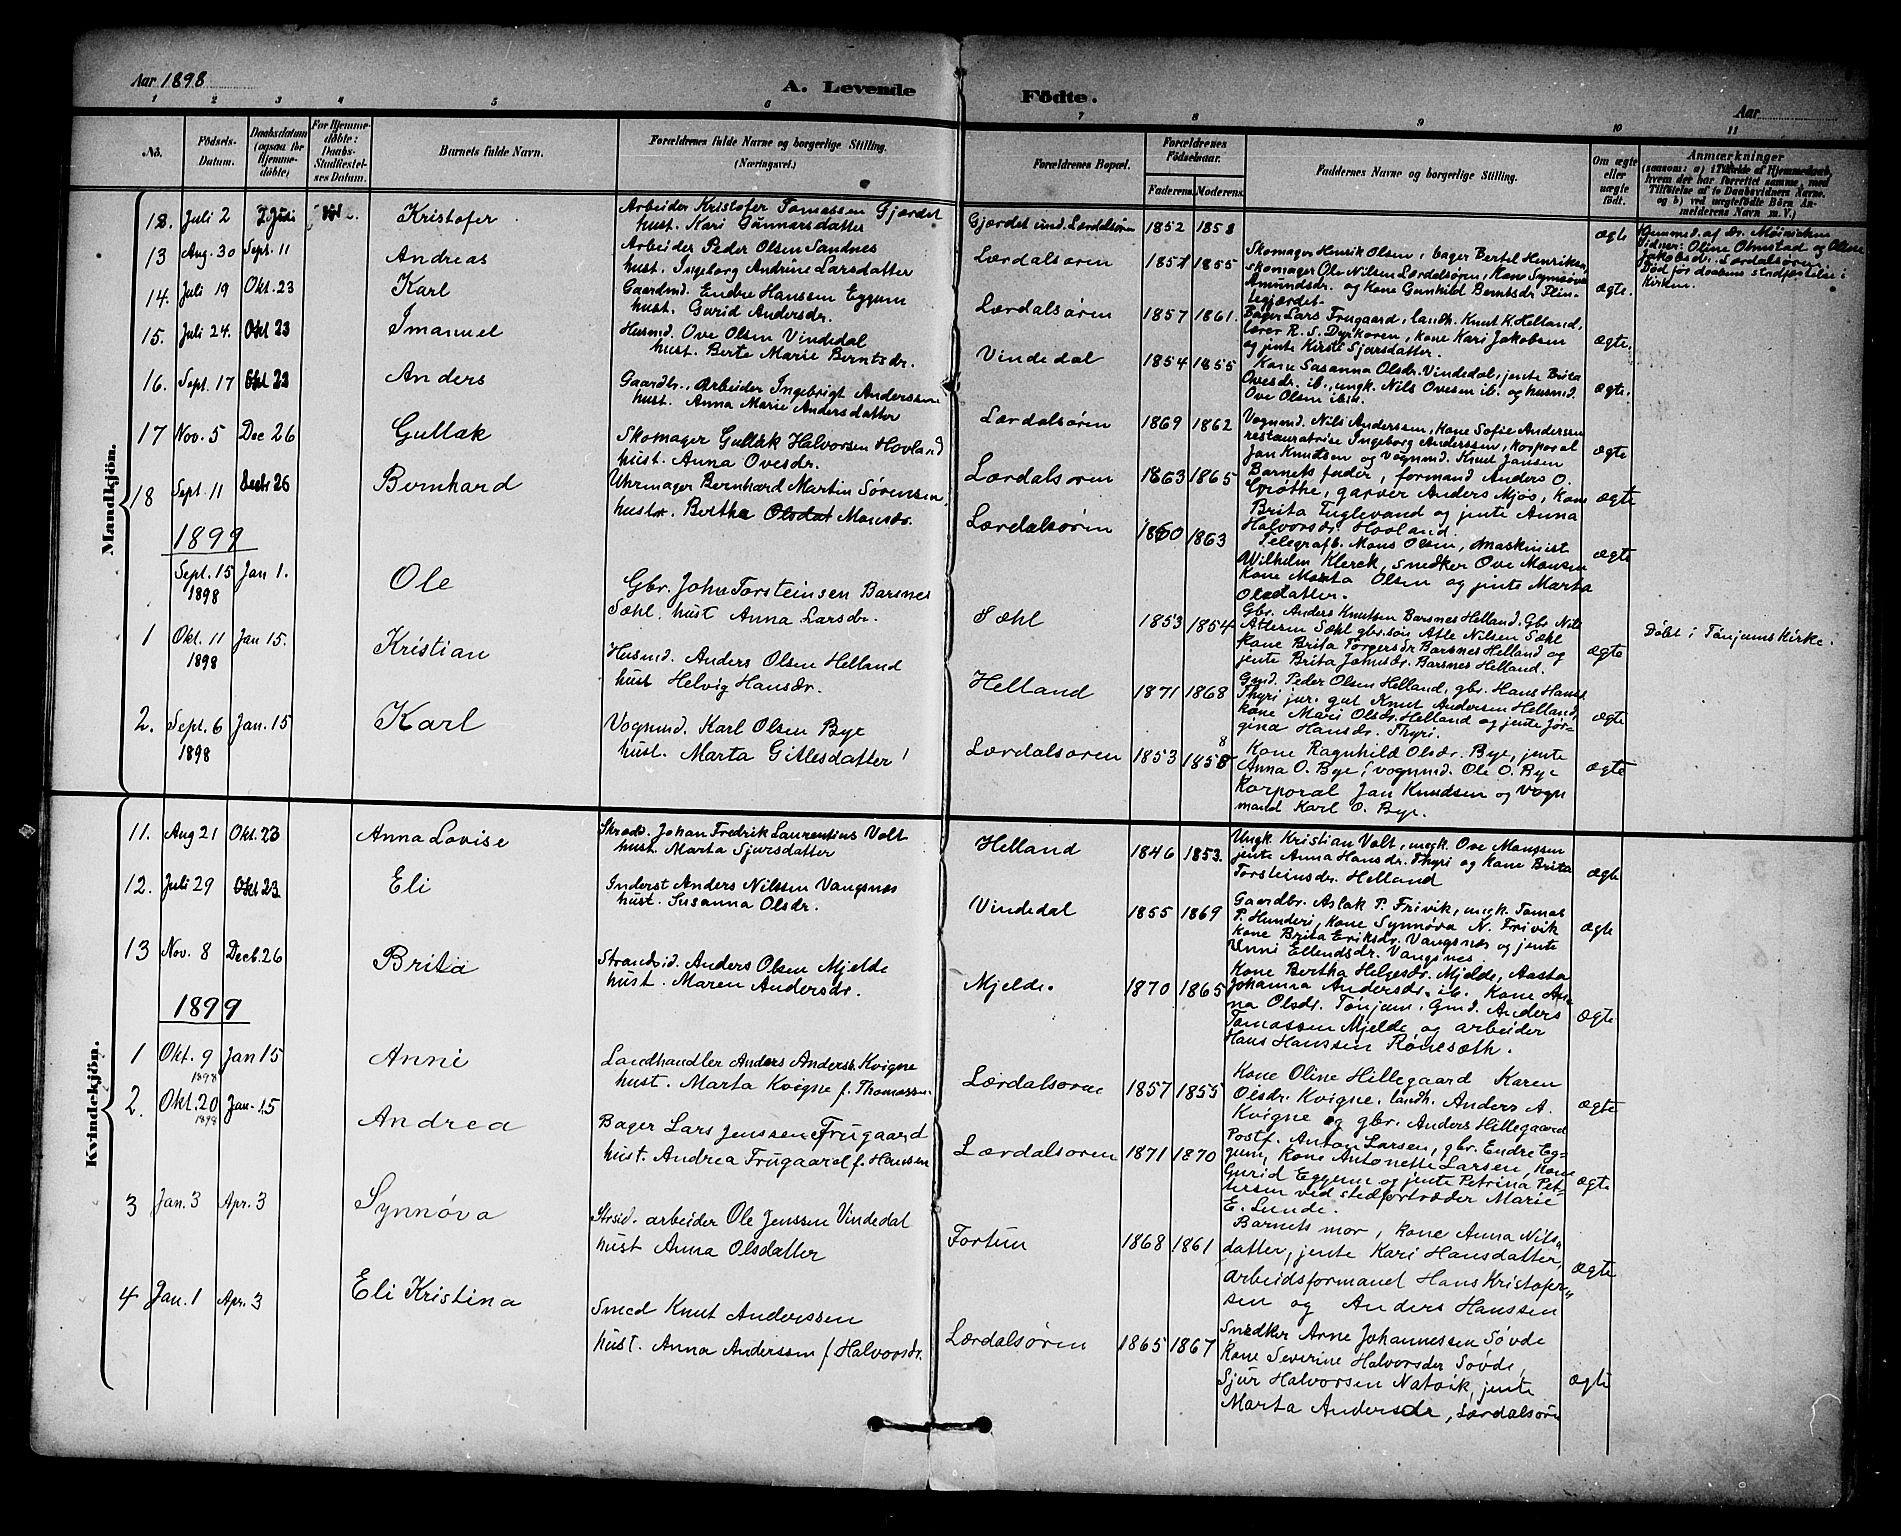 Aar 1898
A. Levende Födte.
Aar
1 2 3 4 5 6 7 8 9 10 11
No.
Födsels-
Datum.
Daabsdatum
(ogsaa for
Hjemme-
döbte)
For Hjemme-
döbte:
Daabs-
Stadfæstel-
ses Datum.
Barnets fulde Navn.
Forældrenes fulde Navne og borgerlige Stilling.
(Næringsvei.)
Forældrenes Bopæl.
Forældrenes
Födselsaar.
Faderens. Moderens.
Faddernes Navne og borgerlige Stilling.
Om ægte
eller
uægte
födt.
Anmærkninger
(saasom: a) Tilfælde af Hjemmedaab,
hvem der har forrettet samme, med
Tilföielse af to Daabsvidners Navne.
og b) ved uægtefödte Börn An-
melderens Navn m. V.)
Mandkjön.
12. Juli 2 Kristofer
Arbeider Kristofer Tomassen Gjærdet
hust. Kari Gunnarsdatter
Gjærdet und. Lærdalsøren 1852 1858
ægte
Hjemmed. af Dr.
Vidner: Oline Olmstad og Oline
Jakobsdr. Lærdalsøren.
Død før daabens stadfæstelse i
Kirken.
13 Aug. 30 Sept. 11 Andreas
Arbeider Peder Olsen Sandnes
hust. Ingeborg Andrine Larsdatter
Lærdalsøren 1851 1855
Skomager Henrik Olsen, bager Bertel Henriksen,
skomager Ole Nilsen Lærdalsøren, Kone Synnøve
Amundsdr. og Kone Gunhild Berntsdr. Flin-
tegjærdet.
ægte.
14. Juli 19 Okt. 23 Karl
Gaardmd. Endre Hanssen Eggum
hust. Gurid Andersdr.
Lærdalsøren 1857 1861.
Bager Lars Frugaard, landh. Knut K. Helland,
lærer R. S. Dyrkoren, Kone Kari Jakobsen
og jente Kirsti Sjursdatter.
ægte.
15. Juli 24. Okt 23 Imanuel
Husmd. Ove Olsen Vindedal
hust. Berte Marie Berntsdr.
Vindedal 1854 1855
Kone Susanna Olsdr. Vindedal, jente Brita
Ovesdr. ib., ungk. Nils Ovesen ib. og husmd.
Ove Olsen ibid.
ægte.
16. Sept. 17 Okt 22 Anders
Gaardbr., Arbeider Ingebrigt Anderssen
hust. Anna Marie Andersdatter
Lærdalsøren 1869 1862
Vognmd. Nils Anderssen, Kone Sofie Anderssen
restauratrise Ingeborg Anderssen, Korporal
Jan Knudsen og Vognmd. Knut Jansen
ægte
17 Nov. 5 Dec 26 Gullak
Skomager Gullak Halvorsen Hovland
hust. Anna Ovesdr.
Lærdalsøren 1863 1865
Barnets fader, formand Anders O.
Grøthe, garver Anders Mjøs, Kone
Brita Fuglevand og jente Anna
Halvorsdr. Hovland.
ægte
18 Sept. 11 Decbr 26 Bernhard
Uhrmager Bernhard Martin Sørensen
hustr. Bertha Olsdat Monsdr.
Lærdalsøren 1860 1863
Telegrafb. Mons Olsen, maskinist
Wilhelm Klerck, snedker Ove Monsen
Kone Marta Olsen og jente Marta
Olsdatter.
ægte
1899
Sept. 15 Jan 1.
1898
Ole
Gbr. John Torsteinsen Barsnes
Sæhl, hust Anna Larsdr.
Sæhl 1853 1854
Gbr. Anders Knutsen Barsnes Helland. Gbr Nils
Atlesen Sæhl gbr.søn Atle Nilsen Sæhl
Kone Brita Torgersdr Barsnes Helland og
jente Brita Johnsdr. Barsnes Helland.
ægte
Døbt i Tønjums Kirke.
1 Okt. 11 Jan 15.
1898
Kristian
Husmd. Anders Olsen Helland
hust Helvig Hansdr.
Helland 1871 1868
Gmd. Peder Olsen Helland, gbr. Hans Hanss.
Thyri jur. gut Knut Andersen Helland,
Kone Mari Olsdr. Helland og jente Jør-
gina Hansdr. Thyri.
ægte
2. Sept. 6 Jan. 15
1898
Karl
Vognmd. Karl Olsen Bye
hust. Marta Gitlesdatter
Lærdalsøren 1853 1858
8
Kone Ragnhild Olsdr. Bye, jente
Anna O. Bye, vognmd. Ole O. Bye
Korporal Jan Knudsen og Vogn
mand Karl O. Bye.
ægte
Kvindekjön.
11. Aug 21 Okt. 23 Anna Lovise
Skræd. Johan Fredrik Laurentius Volt
hust. Marta Sjursdatter
Helland 1846 1853.
Ungk. Kristian Volt, ungk. Ove Monssen
jente Anna Hansdr. Thyri og Kone Brita
Torsteinsdr. Helland
ægte
12. Juli 29 Okt 23 Eli
Inderst Anders Nilssen Vangsnæs
hust. Susanna Olsdr.
Vindedal 1855 1869
Gaardbr. Aslak P. Frivik, ungk. Tomas
P. Hunderi, Kone Synnøva N. Frivik
Kone Brita Eriksdr. Vangsnæs og jente
Unni Ellendsdr. Vangsnes.
ægte
13 Nov. 8 Decb. 26 Brita
Strandsid. Anders Olsen Mjelde
hust. Maren Andersdr.
Mjelde. 1870 1865
Kone Bertha Helgesdr. Mjelde, Aasta
Johanna Andersdr. ib. Kone An-
na Olsdr. Tønjum, Gmd. Anders
Tomassen Mjelde og arbeider
Hans Hanssen Rønesæth.
ægte
1899
1 Okt. 9 Jan 15
1898
Anni
Landhandler Anders Anderss. Kvigne
hust. Marta Kvigne f. Thomassen
Lærdalsøren 1857 1855
Kone Oline Hillegaard Karen
Olsdr. Kvigne, landh. Anders A.
Kvigne og gbr. Anders Hillegaard
ægte
2. Okt. 20 Jan. 15
1898
Andrea
Bager Lars Jenssen Frugaard
hust. Andrea Frugaard f. Hanssen
Lærdalsøren 1871 1870
Postf. Anton Larsen, gbr. Endre Eg-
gum, Kone Antonette Larsen, Kone
Gurid Eggum og jente Petrina Pet-
tersen ved stedfortræder Marie
E. Lunde.
ægte
3 Jan. 3 Apr. 3 Synnøva
Strsid. arbeider Ole Jenssen Vindedal
hust Anna Olsdatter
Fortun 1868 1861
Barnets mor, Kone Anna Nils-
datter, jente Kari Hansdatter,
arbeidsformand Hans Kristofer-
sen og Anders Hanssen
ægte
4 Jan. 1 Apr. 3 Eli Kristina
Smed Knut Anderssen
hust. Anna Anderssen f. Halvorsdr.
Lærdalsøren 1865 1867
Snedker Arne Johannessen Søvde
Kone Severine Halvorsder Søvde,
Sjur Halvorsen Natvik, jente
Marta Andersdr, Lærdalsøren
ægte